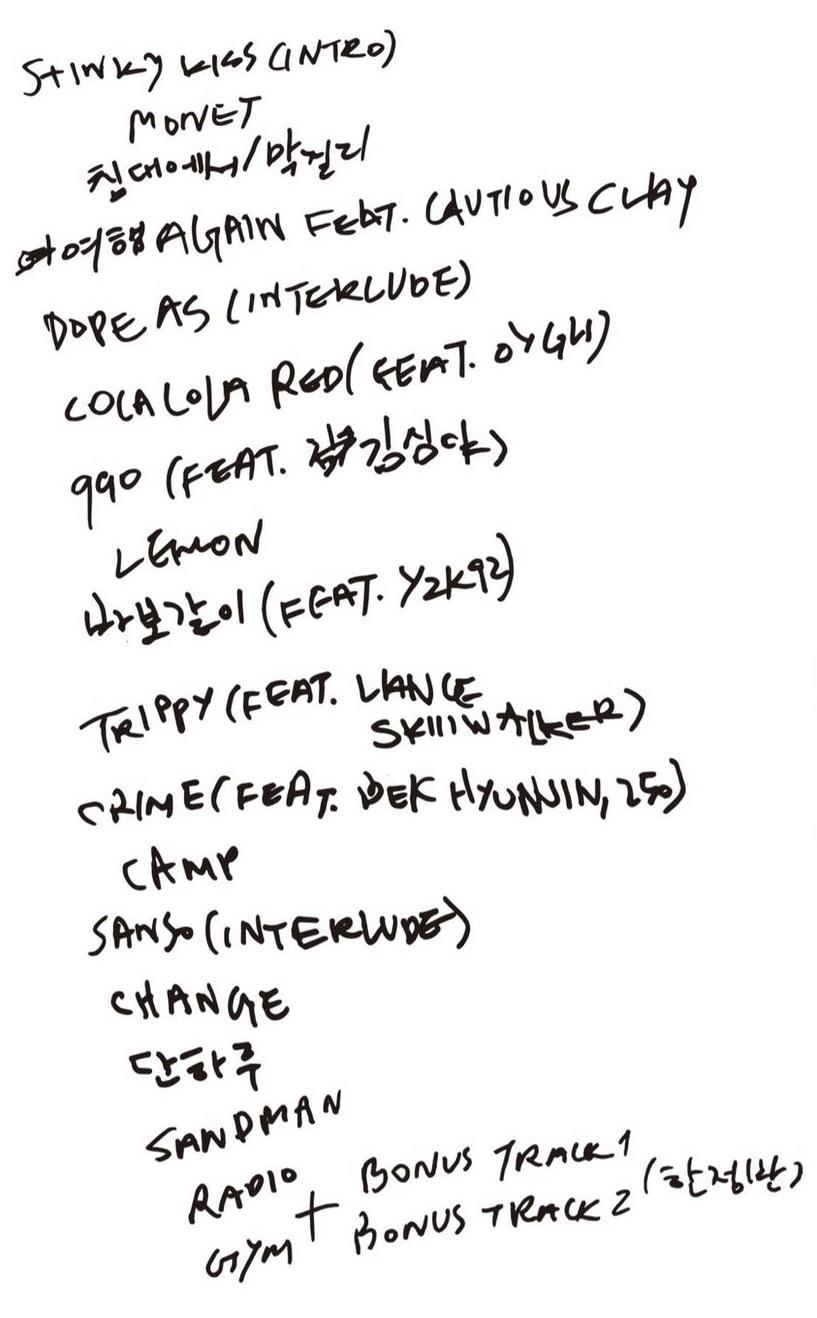 STINKY KISS (INTRO)
MONET
침대에서/막걸리
여행 AGAIN FEAT. CAUTIOUS CLAY
DOPE AS (INTERLUDE)
COCA COLA RED (FEAT. OYGLI)
990 (FEAT. 김심야)
LEMON
바보같이 (FEAT. Y2K92)
TRIPPY (FEAT. LANCE
SKIIIWALKER)
CRIME (FEAT. BEK HYUNJIN, 250)
CAMP
SANSO (INTERLUDE)
CHANGE
단하루
SANDMAN
RADIO
GYM + BONUS TRACK 1
BONUS TRACK 2 (한정반)